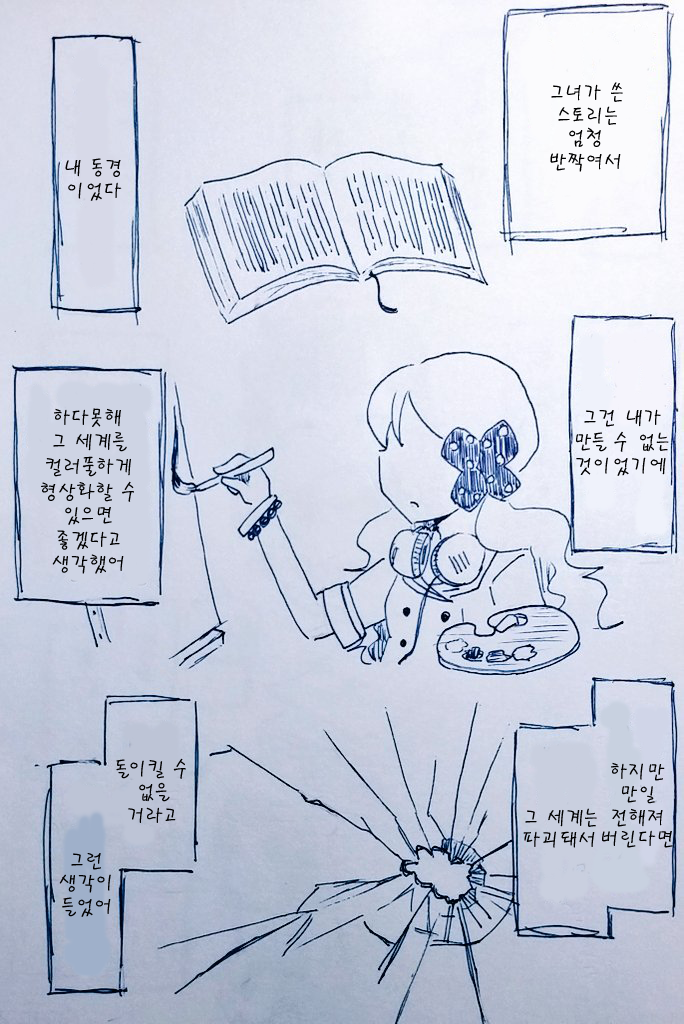 그녀가 쓴
스토리는
엄청
반짝여서
내 동경
이었다
그건 내가
만들 수 없는
것이었기에
하다못해
그 세계를
컬러풀하게
형상화할 수
있으면
좋겠다고
생각했어
하지만
만일
그 세계는 전해져
파괴돼서 버린다면
돌이킬 수
없을
거라고
그런
생각이
들었어